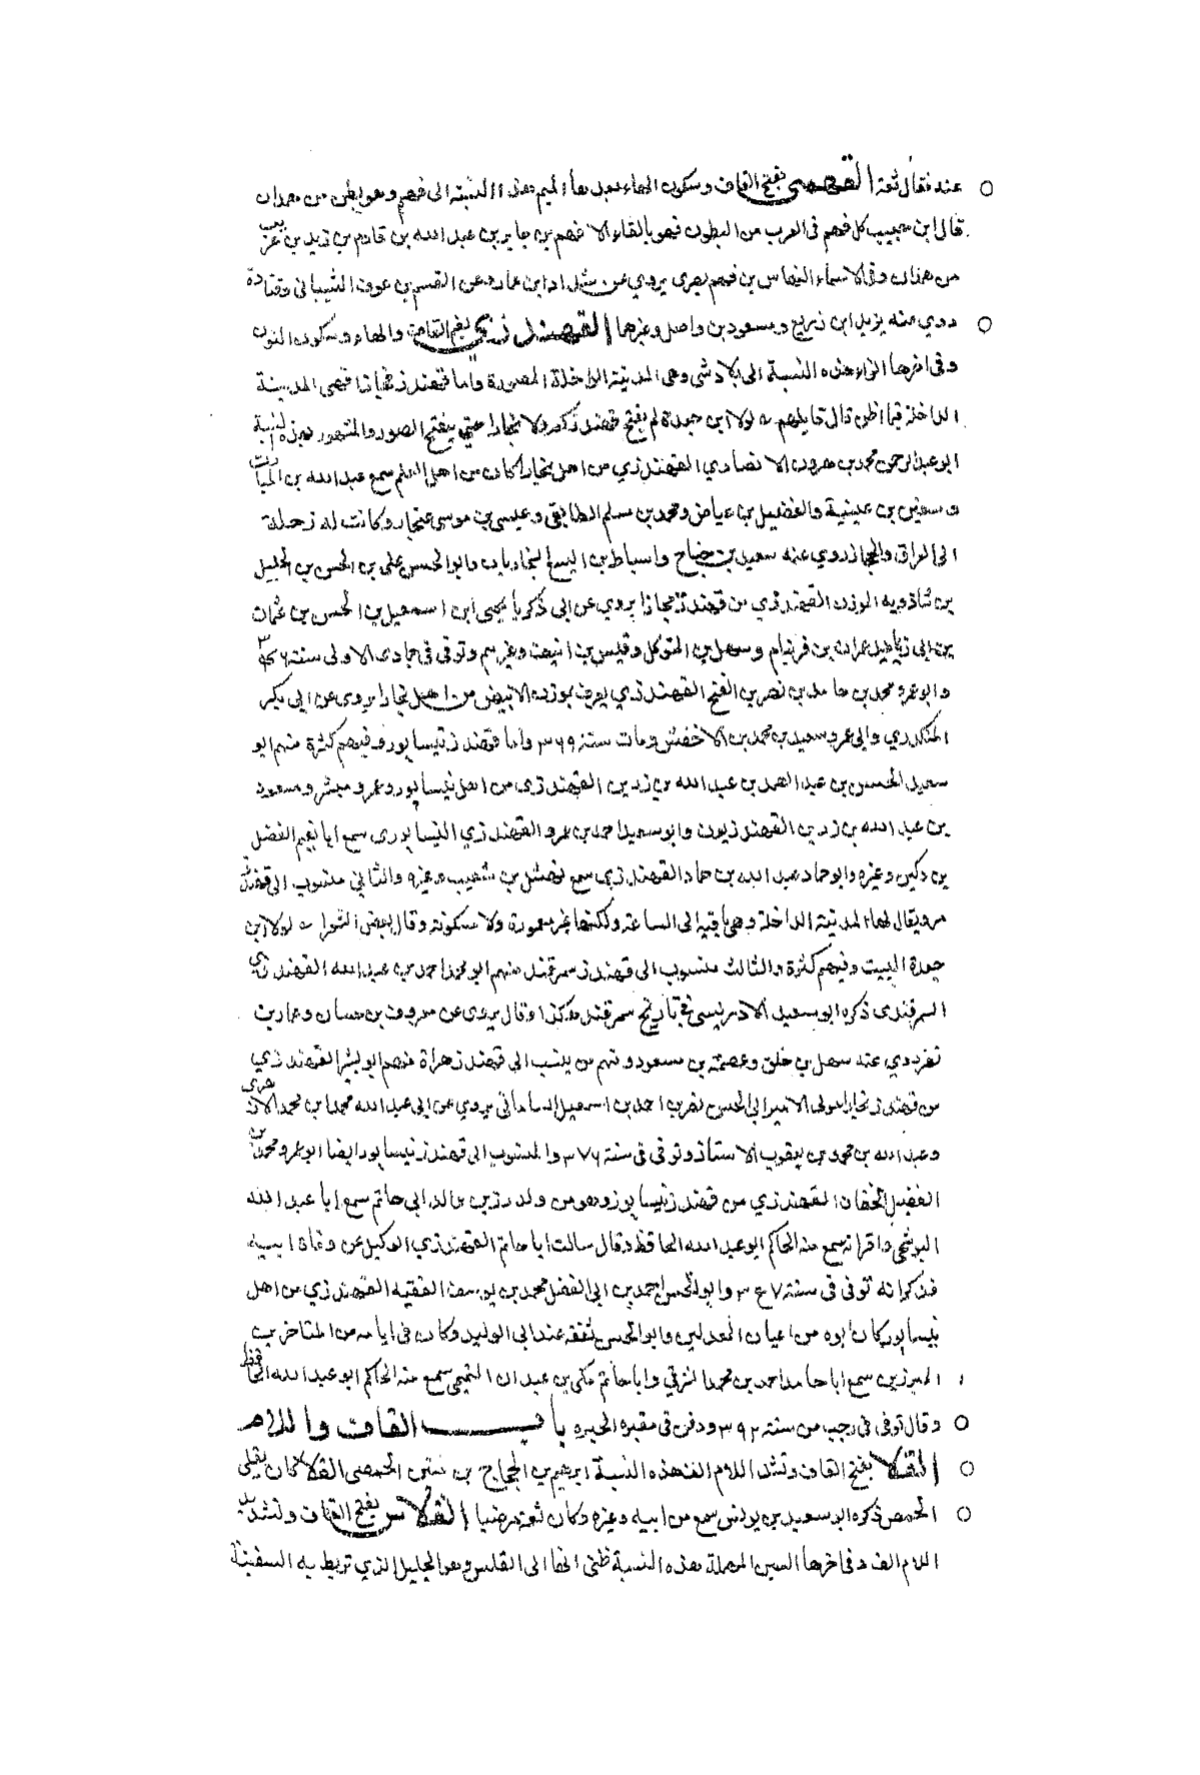 عنه فقال ثقة القهمى بفتح القاف وسكون الهاء بعدها الميم هذه النسبة الى قهم وهو بطن من همدان
قال ابن حبيب كل فهم فى العرب من البطون فهو بالفاء الا قهم بن جابر بن عبد الله بن قادم بن زيد بن عريب
من همدان وفى الاسماء النهاس بن قهم بصرى يروي عن شداد ابن عمار وعن القسم بن عوف الشيبانى وقتادة
روي عنه يزيد ابن زريع ومسعود بن واصل وغيرها القهندزي بضم القاف والهاء وسكون النون
وفى اخرها الزاء هذه النسبة الى بلاد شتى وهى المدينة الداخلة المسورة واما قهندز بخارا فهى المدينة
الداخلة فيما اظن قال قايلهم لولا ابن جعدة لم يفتح قهندزكم ولا بخارا حتى ينفخ الصور والمشهور بهذه النسبة
ابو عبد الرحمن محمد بن هرون الانصاري القهندزي من اهل بخارا كان من اهل العلم سمع عبد الله بن المبارك
وسفين بن عيينة والفضيل بن عياض ومحمد بن مسلم الطايفى وعيسى بن موسى غنجار وكانت له رحلة
الى العراق والحجاز روي عنه سعيد بن جناح واسباط بن اليسع البخاريان وابو الحسن على بن الحسن بن الخليل
بن شاذويه الموذن القهندزي من قهندز بخارا يروي عن ابى ذكريا يحيى ابن اسمعيل بن الحسن بن عثمان
وسهل بن المتوكل وقيس بن انيف وغيرهم وتوفى فى جمادى الاولى سنة
وابو عمرو محمد بن حامد بن نصر بن الفتح القهندزي يعرف بوزه الابيض من اهل بخارا يروى عن ابى بكر
المنكدري وابى عمرو سعيد بن محمد بن الاخفش ومات سنة ٣٦٩ واما قهندز نيسابور وفيهم كثرة منهم ابو
سعيد الحسن بن عبد الصمد بن عبد الله بن رزين القهندزى من اهل نيسابور وعمرو ومبشر ومسعود
بن عبد الله بن رزين القهندزيون وابو سعيد احمد بن عمرو القهندزي النيسابورى سمع ابا نعيم الفضل
بن دكين وغيره وابو حماد عبد الله بن حماد القهندزى سمع نهشل بن وغيره والثانى منسوب الى قهندز
مرو يقال لها المدينة الداخلة وهى باقية الى الساعة ولكنها غير معمورة ولا مسكونة وقال بعض الشعرا لولا ابن
جعدة البيت وفيهم كثرة والثالث منسوب الى قهندز سمرقند منهم ابو محمد احمد بن عبد الله القهندزي
السمرقندى ذكره ابو سعيد الادريسى فى تاريخ سمرقند هكذا وقال يروى عن معروف بن حسان وعمار بن
نصر روي عنه سهل بن خلق وعصمة بن مسعود ومنهم من ينسب الى قهندز هراة منهم ابو بشر القهندزي
من قهندز بخارا مولى الامير ابى الحسن نصر بن احمد بن اسمعيل السامانى يروي عن ابى عبد الله محمد ابن محمد الازهرى
وعبد الله بن محمد بن يعقوب الاستاذ وتوفى فى سنة ٣٧٦ والمنسوب الى قهندز نيسابور ايضا ابو عمرو محمد بن
الفضل الخفان القهندزي من قهندز نيسابور وهو من ولد رزين خالد ابى حاتم سمع ابا عبد الله
البوشنجى واقرانه سمع منه الحاكم ابو عبد الله الحافظ وقال سالت ابا حاتم القهندزي الوكيل عن وفاة ابيه
فذكر انه توفى فى سنة ٣٤٧ وابو الحسن احمد بن ابى الفضل محمد بن يوسف الفقيه القهندزي من اهل
نيسابور كان ابوه من اعيان المعدلين وابو الحسن تفقه عند ابى الوليد وكان فى ايامه من المتاخرين
المبرزين سمع ابا حامد احمد بن محمد الشرقى وابا حاتم مكى بن عبدان التميمى سمع منه الحاكم ابو عبد الله الحافظ
وقال توفى فى رجب من سنة ٣٩٢ ودفن فى مقبرة الحيره باب القاف واللام
القلا بفتح القاف وتشد اللام الف هذه النسبة ابرهيم بن الحجاج بن الحمصى القلا كان يقلى
الحمص ذكره ابو سعيد بن يونس سمع من ابيه وغيره وكان ثقة مرضيا القلاس بفتح القاف وتشديد
اللام الف وفى اخرها السين المهملة هذه النسبة ظنى انها الى القلس وهو الحبل الذي تربط به السفينة